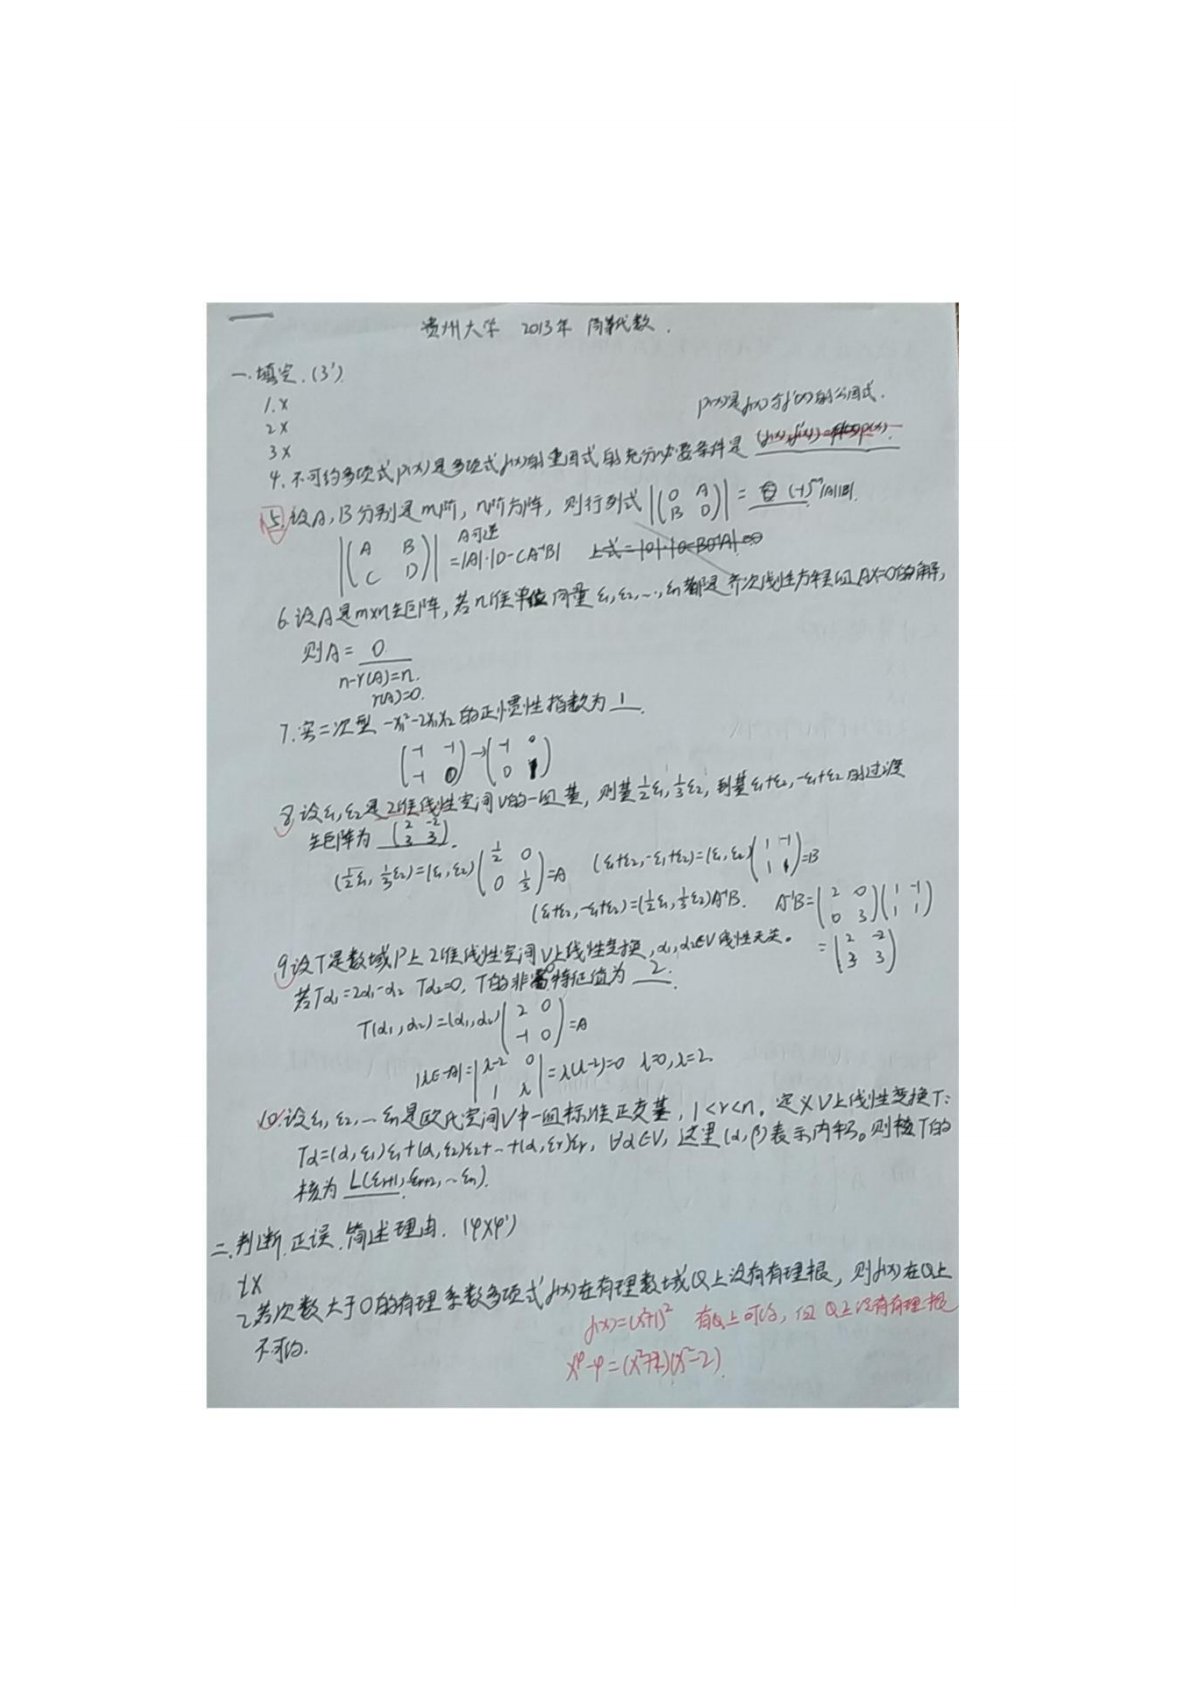 贵州大学 2013年 高等代数.
一.填空.(3')
1.X
2X
3X
p(x)是f(x)与f'(x)的公因式.
4.不可约多项式p(x)是多项式f(x)的重因式的充分必要条件是
5.设A,B分别是m阶,n阶方阵,则行列式|(0 A; B 0)| = (-1)^{mn}|A||B|.
|(A B; C D)| A可逆 = |A|·|D-CA⁻¹B| 上式=
6.设A是m×n矩阵,若n维单位向量ε₁,ε₂,…,εn都是齐次线性方程组AX=0的解,
则A= 0
n-r(A)=n.
r(A)=0.
7.实二次型 -x₁²-2x₁x₂的正惯性指数为 1 .
(-1 -1; -1 0)→(-1 0; 0 1)
8.设ε₁,ε₂是2维线性空间V的一组基,则基½ε₁,⅓ε₂,到基ε₁+ε₂,-ε₁+ε₂的过渡
矩阵为 (2 -2; 3 3).
(½ε₁,⅓ε₂)=(ε₁,ε₂)(½ 0; 0 ⅓)=A (ε₁+ε₂,-ε₁+ε₂)=(ε₁,ε₂)(1 -1; 1 1)=B
(ε₁+ε₂,-ε₁+ε₂)=(½ε₁,⅓ε₂)A⁻¹B. A⁻¹B=(2 0; 0 3)(1 -1; 1 1)
=(2 -2; 3 3)
9.设T是数域P上2维线性空间V上线性变换,α₁,α₂∈V线性无关。
若Tα₁=2α₁-α₂ Tα₂=0,T的非零特征值为 2 .
T(α₁,α₂)=(α₁,α₂)(2 0; -1 0)=A
|λE-A|=|λ-2 0; 1 λ|=λ(λ-2)=0 λ=0,λ=2.
10.设ε₁,ε₂,…εn是欧氏空间V中一组标准正交基,1<r<n。定义V上线性变换T:
Tα=(α,ε₁)ε₁+(α,ε₂)ε₂+…+(α,εr)εr, ∀α∈V,这里(α,β)表示内积。则T的
核为 L(εr+1,εr+2,…εn).
二.判断正误.简述理由.(4×4')
1X
2.若次数大于0的有理系数多项式f(x)在有理数域Q上没有有理根,则f(x)在Q上
不可约.
f(x)=(x²+1)² 在Q上可约,但Q上没有有理根
x⁴-4=(x²+2)(x²-2).